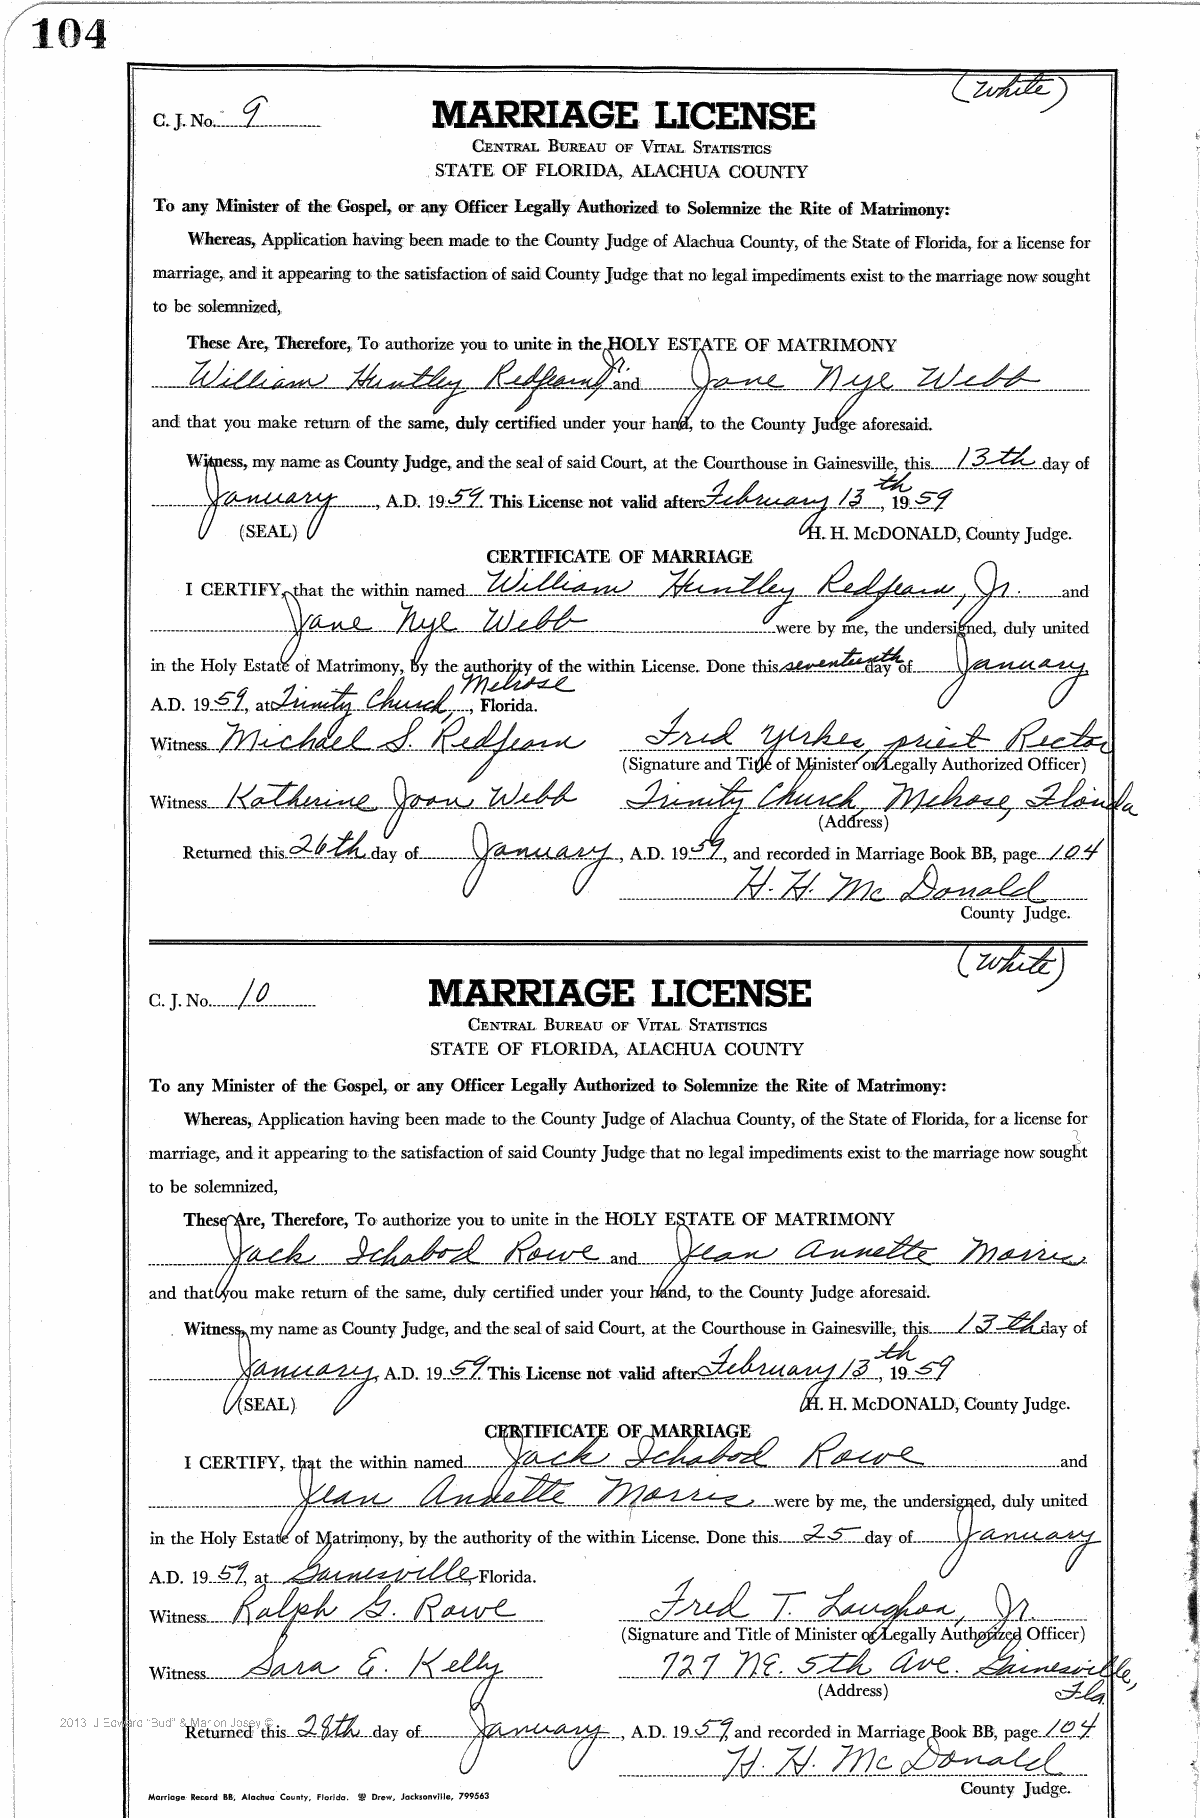 104
(White)
C. J. No. 9
MARRIAGE LICENSE
CENTRAL BUREAU OF VITAL STATISTICS
STATE OF FLORIDA, ALACHUA COUNTY
To any Minister of the Gospel, or any Officer Legally Authorized to Solemnize the Rite of Matrimony:
Whereas, Application having been made to the County Judge of Alachua County, of the State of Florida, for a license for
marriage, and it appearing to the satisfaction of said County Judge that no legal impediments exist to the marriage now sought
to be solemnized,
These Are, Therefore, To authorize you to unite in the HOLY ESTATE OF MATRIMONY
William Huntley Redfearn, Jr. and Jane Nye Webb
and that you make return of the same, duly certified under your hand, to the County Judge aforesaid.
Witness, my name as County Judge, and the seal of said Court, at the Courthouse in Gainesville, this 13th day of
January, A.D. 1959. This License not valid after February 13th, 1959
(SEAL) H. H. McDONALD, County Judge.
CERTIFICATE OF MARRIAGE
I CERTIFY, that the within named William Huntley Redfearn, Jr. and
Jane Nye Webb were by me, the undersigned, duly united
in the Holy Estate of Matrimony, by the authority of the within License. Done this seventeenth day of January
A.D. 1959, at Trinity Church, Melrose, Florida.
Witness Michael S. Redfearn Fred Yerkes, priest Rector
(Signature and Title of Minister or Legally Authorized Officer)
Witness Katherine Joan Webb Trinity Church, Melrose, Florida
(Address)
Returned this 26th day of January, A.D. 1959, and recorded in Marriage Book BB, page 104
H. H. McDonald
County Judge.
(White)
C. J. No. 10
MARRIAGE LICENSE
CENTRAL BUREAU OF VITAL STATISTICS
STATE OF FLORIDA, ALACHUA COUNTY
To any Minister of the Gospel, or any Officer Legally Authorized to Solemnize the Rite of Matrimony:
Whereas, Application having been made to the County Judge of Alachua County, of the State of Florida, for a license for
marriage, and it appearing to the satisfaction of said County Judge that no legal impediments exist to the marriage now sought
to be solemnized,
These Are, Therefore, To authorize you to unite in the HOLY ESTATE OF MATRIMONY
Jack Ichabod Rowe and Jean Annette Morris
and that you make return of the same, duly certified under your hand, to the County Judge aforesaid.
Witness, my name as County Judge, and the seal of said Court, at the Courthouse in Gainesville, this 13th day of
January, A.D. 1959. This License not valid after February 13th, 1959
(SEAL) H. H. McDONALD, County Judge.
CERTIFICATE OF MARRIAGE
I CERTIFY, that the within named Jack Ichabod Rowe and
Jean Annette Morris were by me, the undersigned, duly united
in the Holy Estate of Matrimony, by the authority of the within License. Done this 25 day of January
A.D. 1959, at Gainesville, Florida.
Witness Ralph G. Rowe Fred T. Laughon, Jr.
(Signature and Title of Minister or Legally Authorized Officer)
Witness Sara E. Kelly 727 NE. 5th Ave. Gainesville, Fla.
(Address)
2013 J Edward "Bud" & Marion Josey ©
Returned this 28th day of January, A.D. 1959, and recorded in Marriage Book BB, page 104
H. H. McDonald
County Judge.
Marriage Record BB, Alachua County, Florida. Drew, Jacksonville, 799563